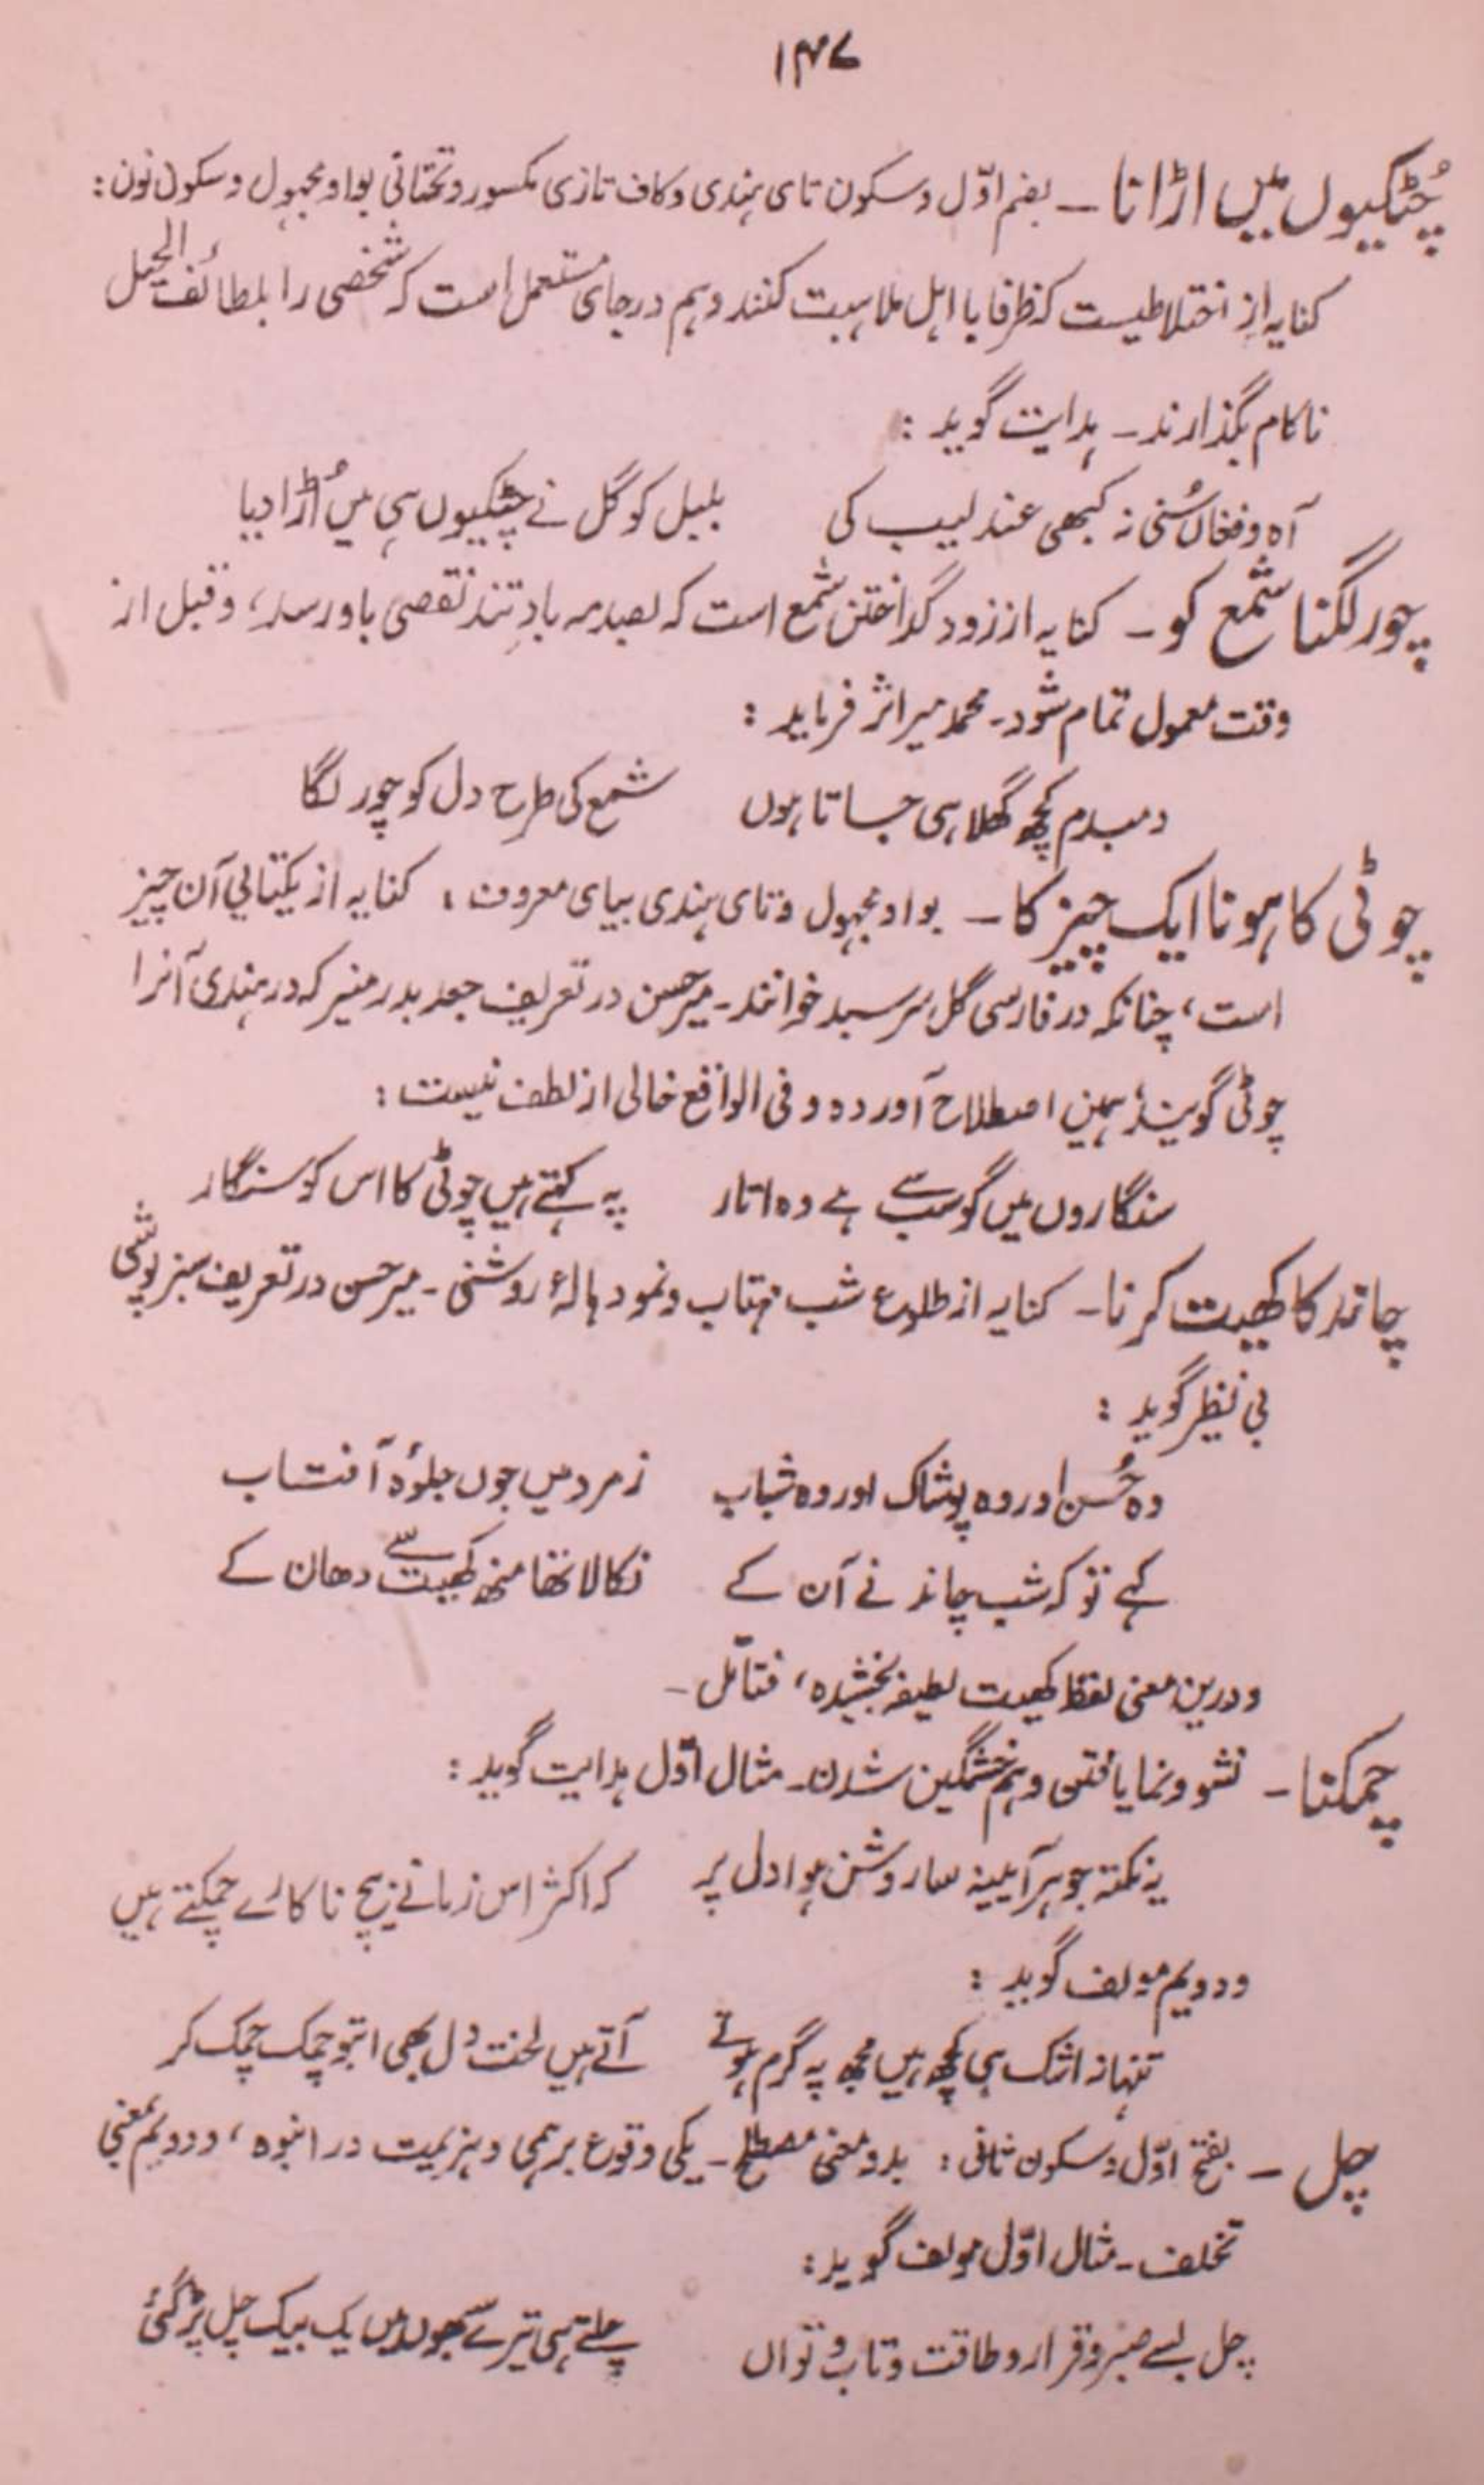 ۱۴۷
چُٹکیوں میں اڑانا ـ بضم اوّل و سکون تای ہندی و کاف تازی مکسور و تحتانی بواو مجہول و سکون نون :
کنایہ از اختلاطیست کہ ظرفا با اہل ملاہبت کنند و ہم در جای مستعمل است کہ شخصی را بلطائف الحیل
ناکام بگذارند ـ ہدایت گوید :
آہ و فغاں سُنی نہ کبھی عندلیب کی بلبل کو گل نے چٹکیوں ہی میں اُڑا دیا
چور لگنا شمع کو ـ کنایہ از زود گداختن شمع است کہ بصدمہ بادِ تند نقصی باو رسد، و قبل از
وقت معمول تمام شود ـ محمد میر اثر فرماید :
دمبدم کچھ گھلا ہی جاتا ہوں شمع کی طرح دل کو چور لگا
چوٹی کا ہونا ایک چیز کا ـ بواو مجہول و تای ہندی بیای معروف : کنایہ از یکتایی آن چیز
است، چنانکہ در فارسی گل سر سبد خوانند ـ میر حسن در تعریف جعد بدر منیر کہ در ہندی آنرا
چوٹی گویند، ہمین اصطلاح آوردہ و فی الواقع خالی از لطف نیست :
سنگاروں میں گو سب سے ہے وہ اتار پہ کہتے ہیں چوٹی کا اس کو سنگار
چاند کا کھیت کرنا ـ کنایہ از طلوع شب مہتاب و نمود ہالۂ روشنی ـ میر حسن در تعریف سبز پوشی
بی نظیر گوید :
وہ حُسن اور وہ پوشاک اور وہ شباب زمرد میں جوں جلوۂ آفتاب
کہے تو کہ شب چاند نے آن کے نکالا تھا منھ کھیت سے دھان کے
و درین معنی لفظ کھیت لطیفہ بخشیدہ، فتأمّل ـ
چمکنا ـ نشو و نما یافتن و ہم خشمگین شدن ـ مثال اوّل ہدایت گوید :
یہ نکتہ جوہر آیینہ سا روشن ہوا دل پر کہ اکثر اس زمانے بیچ ناکارے چمکتے ہیں
و دویم مولف گوید :
تنہا نہ اشک ہی کچھ ہیں مجھ پہ گرم ہوتے آتے ہیں لخت دل بھی ابتو چمک چمک کر
چل ـ بفتح اوّل و سکون ثانی : بدو معنی مصطلح ـ یکی وقوع برہمی و ہزیمت در انبوہ، و دویم بمعنی
تخلف ـ مثال اوّل مولف گوید :
چل بسے صبر و قرار و طاقت و تاب و تواں چلتے ہی تیرے سبھوں میں یک بیک چل پڑ گئی